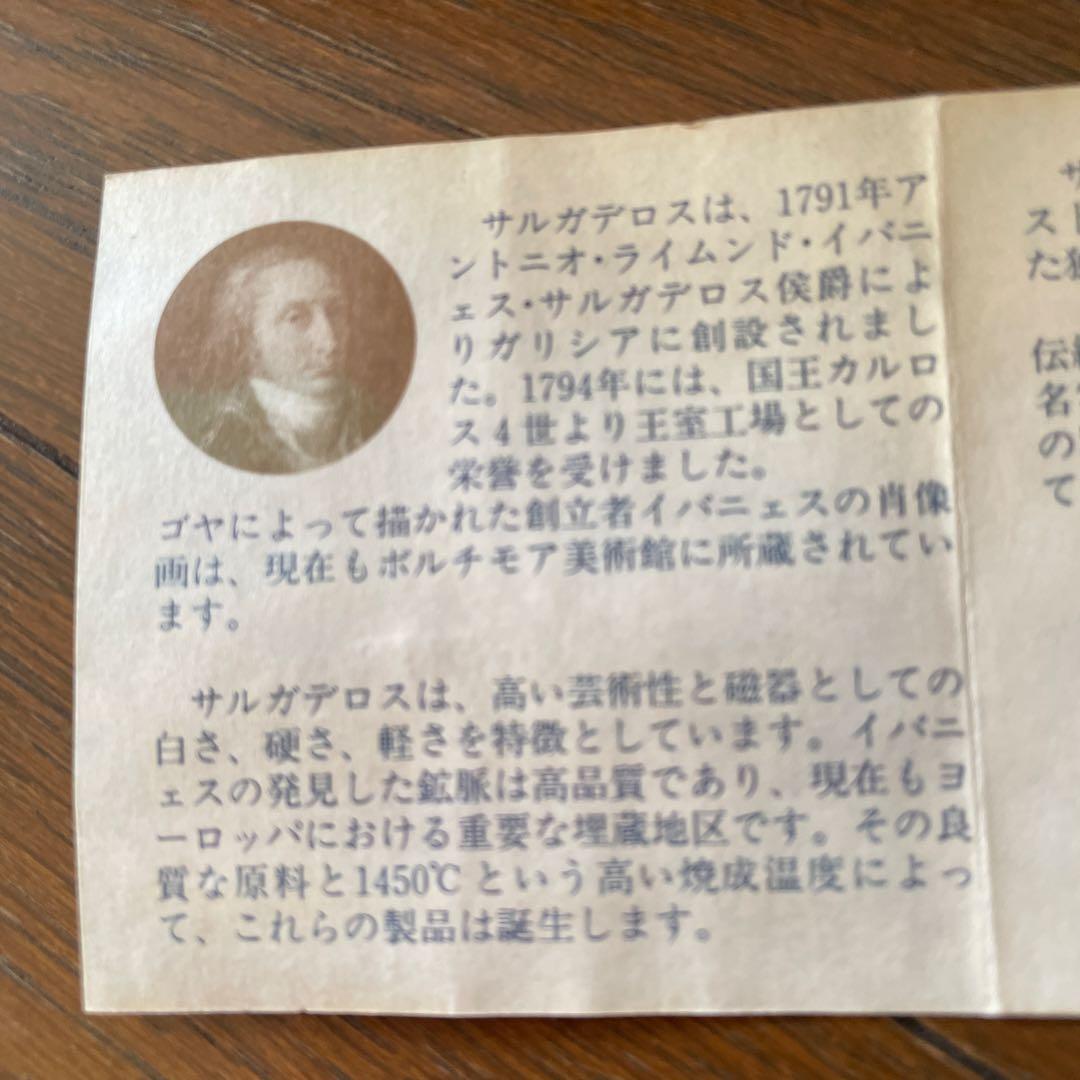 サルガデロスは、1791年ア
ントニオ・ライムンド・イバニ
ェス・サルガデロス侯爵によ
りガリシアに創設されまし
た。1794年には、国王カルロ
ス4世より王室工場としての
栄誉を受けました。
ゴヤによって描かれた創立者イバニェスの肖像
画は、現在もボルチモア美術館に所蔵されてい
ます。
サルガデロスは、高い芸術性と磁器としての
白さ、硬さ、軽さを特徴としています。イバニ
ェスの発見した鉱脈は高品質であり、現在もヨ
ーロッパにおける重要な埋蔵地区です。その良
質な原料と1450℃という高い焼成温度によっ
て、これらの製品は誕生します。
サ
スト
た独
伝統
名
の
て